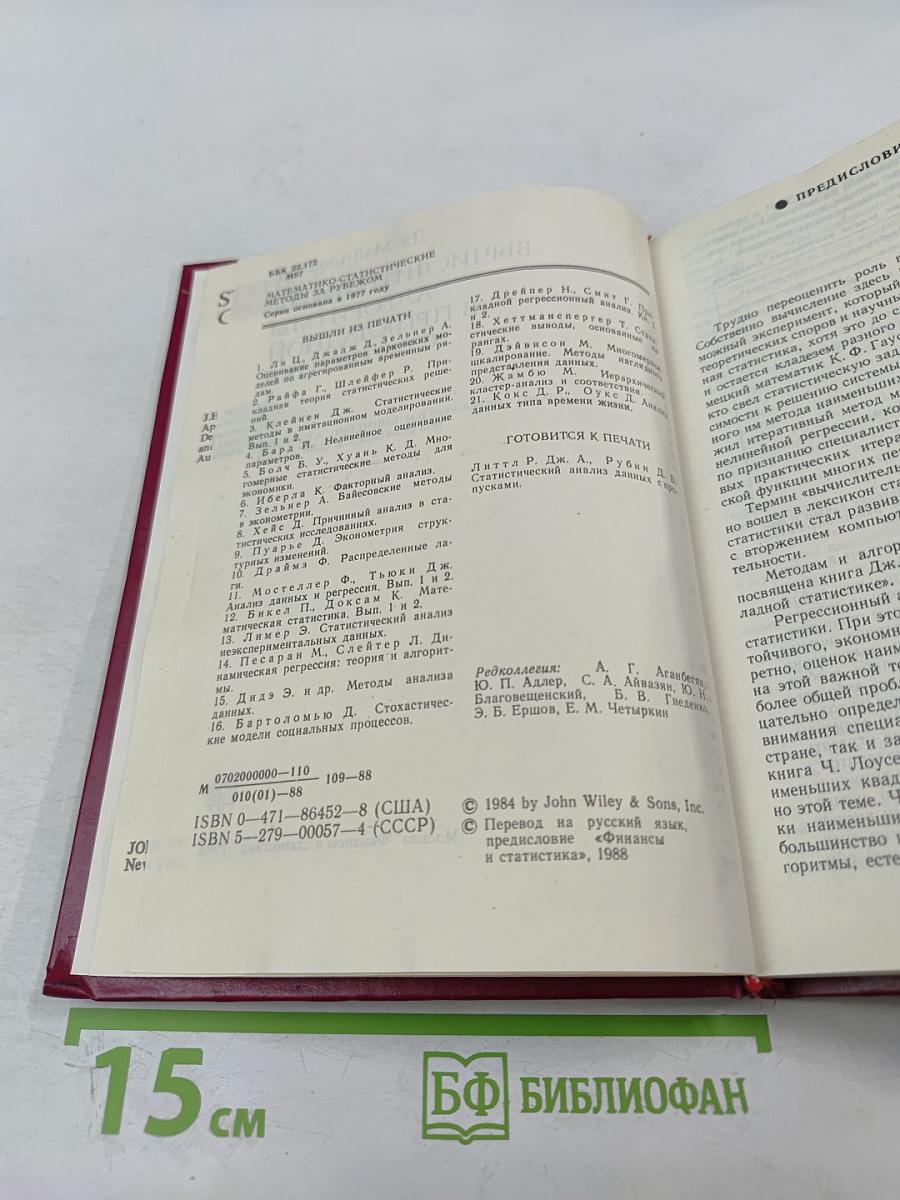 ББК 22.172
М97
МАТЕМАТИКО-СТАТИСТИЧЕСКИЕ
МЕТОДЫ ЗА РУБЕЖОМ
Серия основана в 1977 году
ВЫШЛИ ИЗ ПЕЧАТИ
1. Ли Ц., Джадж Д., Зельнер А.
Оценивание параметров марковских мо-
делей по агрегированным временным ря-
дам.
2. Райфа Г., Шлейфер Р. При-
кладная теория статистических реше-
ний.
3. Клейнен Дж. Статистические
методы в имитационном моделировании.
Вып. 1 и 2.
4. Бард Й. Нелинейное оценивание
параметров.
5. Болч Б. У., Хуань К. Д. Мно-
гомерные статистические методы для
экономики.
6. Иберла К. Факторный анализ.
7. Зельнер А. Байесовские методы
в эконометрии.
8. Хейс Д. Причинный анализ в ста-
тистических исследованиях.
9. Пуарье Д. Эконометрия струк-
турных изменений.
10. Драймз Ф. Распределенные ла-
ги.
11. Мостеллер Ф., Тьюки Дж.
Анализ данных и регрессия. Вып. 1 и 2.
12. Бикел П., Доксам К. Мате-
матическая статистика. Вып. 1 и 2.
13. Лимер Э. Статистический анализ
неэкспериментальных данных.
14. Песаран М., Слейтер Л. Ди-
намическая регрессия: теория и алгорит-
мы.
15. Дидэ Э. и др. Методы анализа
данных.
16. Бартоломью Д. Стохастичес-
кие модели социальных процессов.
17. Дрейпер Н., Смит Г. При-
кладной регрессионный анализ. Кн. 1
и 2.
18. Хеттманспергер Т. Стати-
стические выводы, основанные на
рангах.
19. Дэйвисон М. Многомерное
шкалирование. Методы наглядного
представления данных.
20. Жамбю М. Иерархический
кластер-анализ и соответствия.
21. Кокс Д. Р., Оукс Д. Анализ
данных типа времени жизни.
ГОТОВИТСЯ К ПЕЧАТИ
Литтл Р. Дж. А., Рубин Д. Б.
Статистический анализ данных с про-
пусками.
Редколлегия: А. Г. Аганбегян,
Ю. П. Адлер, С. А. Айвазян, Ю. Н.
Благовещенский, Б. В. Гнеденко,
Э. Б. Ершов, Е. М. Четыркин
М 0702000000—110 109—88
010(01)—88
ISBN 0—471—86452—8 (США)
ISBN 5—279—00057—4 (СССР)
© 1984 by John Wiley & Sons, Inc.
© Перевод на русский язык,
предисловие «Финансы
и статистика», 1988
● ПРЕДИСЛОВИ
Трудно переоценить роль
Собственно вычисление здесь
можный эксперимент, который
теоретических споров и научны
ная статистика, хотя это до с
и остается кладезем разного
мецкий математик К. Ф. Гаус
кто свел статистическую зад
симости к решению системы
ного им метода наименьших
жил итеративный метод м
нелинейной регрессии, ко
по признанию специалист
вых практических итера
ской функции многих пе
Термин «вычислитель
но вошел в лексикон ста
статистики стал развив
с вторжением компьют
тельности.
Методам и алгор
посвящена книга Дж.
ладной статистике».
Регрессионный а
статистики. При это
тойчивого, экономн
ретно, оценок наим
на этой важной те
более общей проб
щательно определ
внимания специа
стране, так и за
книга Ч. Лоусе
именьших квад
но этой теме. Ч
ки наименьши
большинство
горитмы, есте
15 см
БФ БИБЛИОФАН